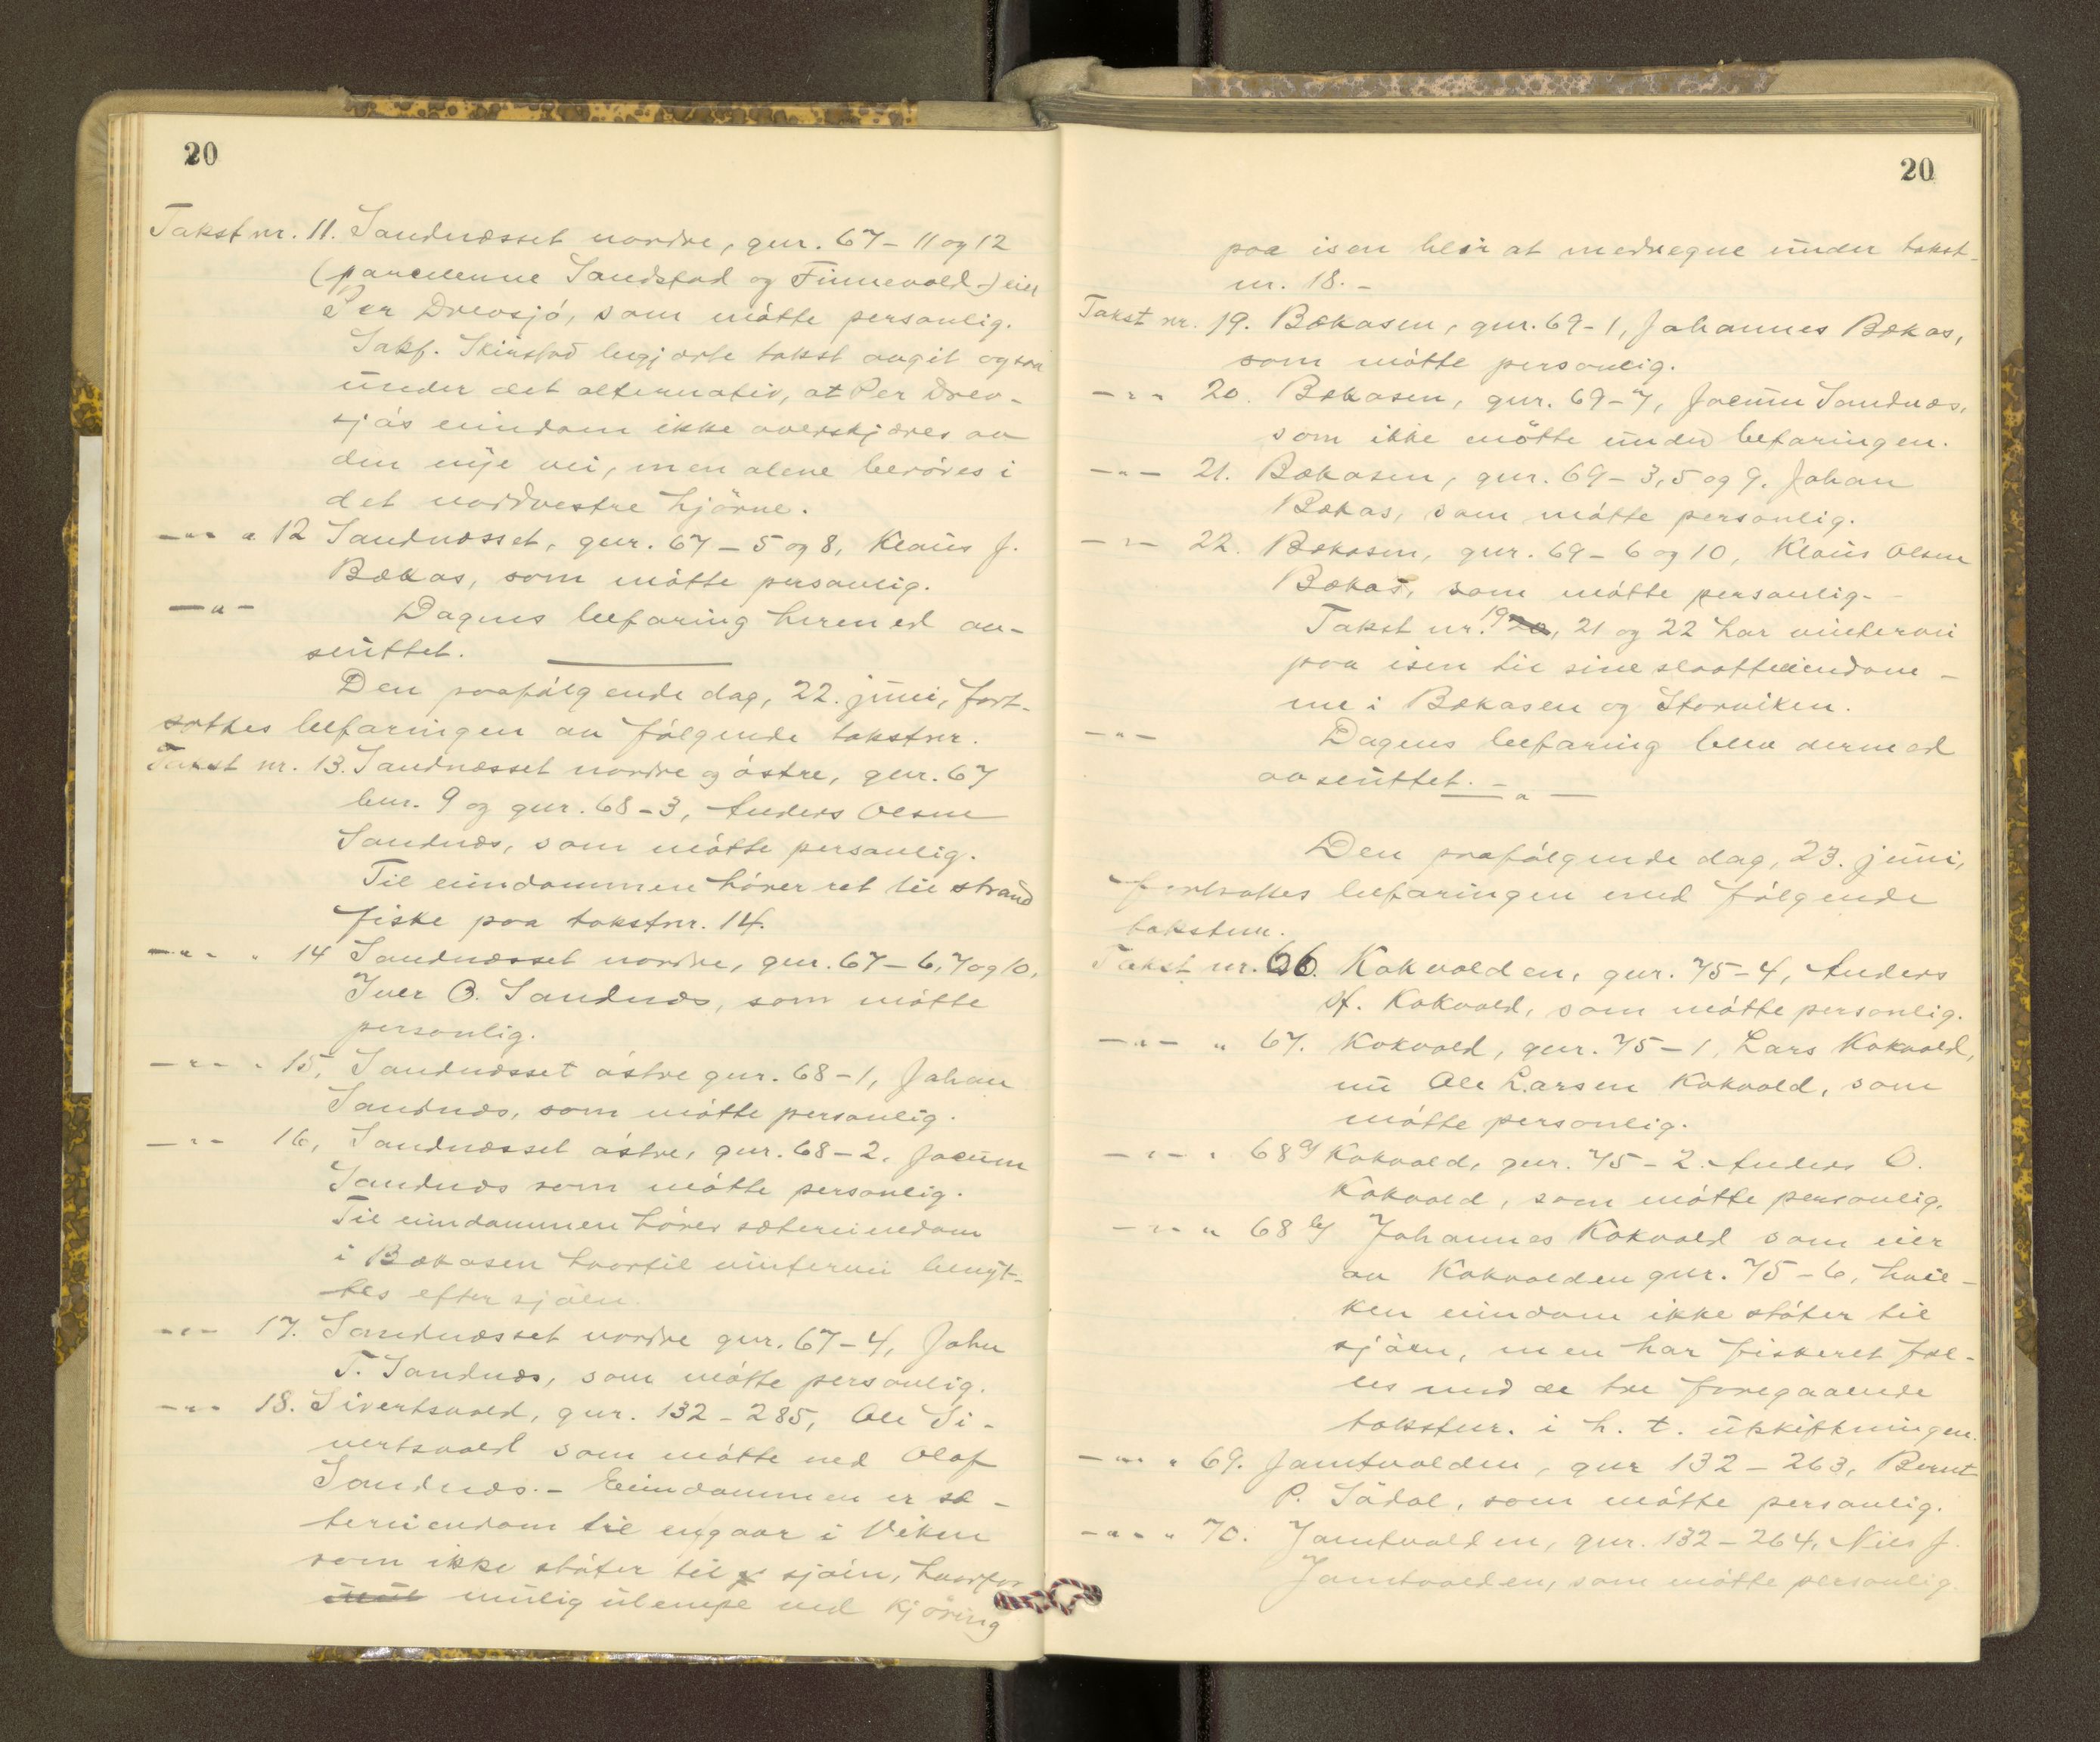 20
Takst nr. 11. Sandnæsset nordre, gnr. 67 - 11 og 12
(parcellenne Sandstad og Finnevold) eier
Per Drevsjö, som mötte personlig.
Sakf. Skirstad begjærte takst avgit ogsaa
under det alternativ, at Per Drev-
sjös eiendom ikke overskjæres av
den nye vei, men alene beröres i
det nordvestre hjörne.
—"— " 12 Sandnæsset, gnr. 67 - 5 og 8, Klaus J.
Bækas, som mötte personlig.
—"— Dagens befaring hermed av-
sluttet.
Den paafölgende dag, 22. juni, fort-
sattes befaringen av fölgende takstnr.
Takst nr. 13. Sandnæsset nordre og östre, gnr. 67
bnr. 9 og gnr. 68 - 3, Anders Olsen
Sandnæs, som mötte personlig.
Til eiendommen hörer ret til strand
fiske paa takstnr. 14.
—"— " 14 Sandnæsset nordre, gnr. 67 - 6, 7 og 10,
Iver O. Sandnæs, som mötte
personlig.
—"— " 15, Sandnæsset östre gnr. 68 - 1, Johan
Sandnæs, som mötte personlig.
—"— 16, Sandnæsset östre, gnr. 68 - 2. Jocum
Sandnæs som mötte personlig.
Til eiendommen hörer sætereiendom
i Bækasen hvortil vintervei benyt-
tes efter sjöen.
—"— 17. Sandnæsset nordre gnr. 67 - 4, John
T. Sandnæs, som mötte personlig.
—"— 18. Sivertsvold, gnr. 132 - 285, Ole Si-
vertsvold som mötte ved Olaf
Sandnæs. - Eiendommen er sæ-
tereiendom til engaar i Viken
som ikke stöter til sjöen, hvorfor
mulig ulempe ved kjöring
20
paa isen blir at medregne under takst-
nr. 18. -
Takst nr. 19. Bækasen, gnr. 69 - 1, Johannes Bækas,
som mötte personlig.
—"— 20. Bækasen, gnr. 69 - 7, Jocum Sandnæs,
som ikke mötte under befaringen.
—"— 21. Bækasen, gnr. 69 - 3, 5 og 9. Johan
Bækas, som mötte personlig.
—"— 22. Bækasen, gnr. 69 - 6 og 10, Klaus Olsen
Bækas, som mötte personlig. -
Takst nr. 19, 21 og 22 har vintervei
paa isen til sine slaatteiendom-
me i Bækasen og Storviken.
—"— Dagens befaring blev dermed
avsluttet. -
—"—
Den paafölgende dag, 23. juni,
fortsattes befaringen med fölgende
takstnr.
Takst nr. 66. Kokvolden, gnr. 75 - 4, Anders
H. Kokvold, som mötte personlig.
—"— " 67. Kokvold, gnr. 75 - 1, Lars Kokvold,
nu Ole Larsen Kokvold, som
mötte personlig.
—"— " 68 a/ Kokvold, gnr. 75 - 2. Anders O.
Kokvold, som mötte personlig.
—"— " 68 b/ Johannes Kokvold som eier
av Kokvolden gnr. 75 - 6, hvil-
ken eiendom ikke stöter til
sjöen, men har fiskeret fæl-
les med de tre foregaaende
takstnr. i h. t. utskiftningen.
—"— " 69. Jamtvolden, gnr 132 - 263, Bernt
P. Södal, som mötte personlig.
—"— " 70. Jamtvolden, gnr. 132 - 264, Nils J.
Jamtvolden, som mötte personlig.